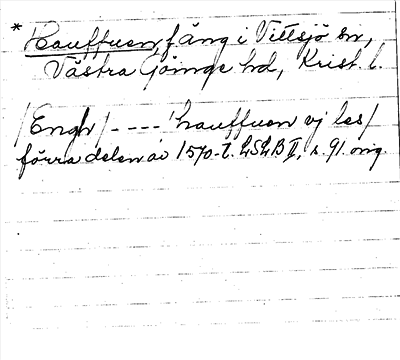 * Hauffuen, fäng i Vittsjö sn,
Västra Göinge hd, Krist. l.
/Engh/ ---- 'hauffuen vj les/
förra delen av 1570-t. LSLB II, s. 91 orig.